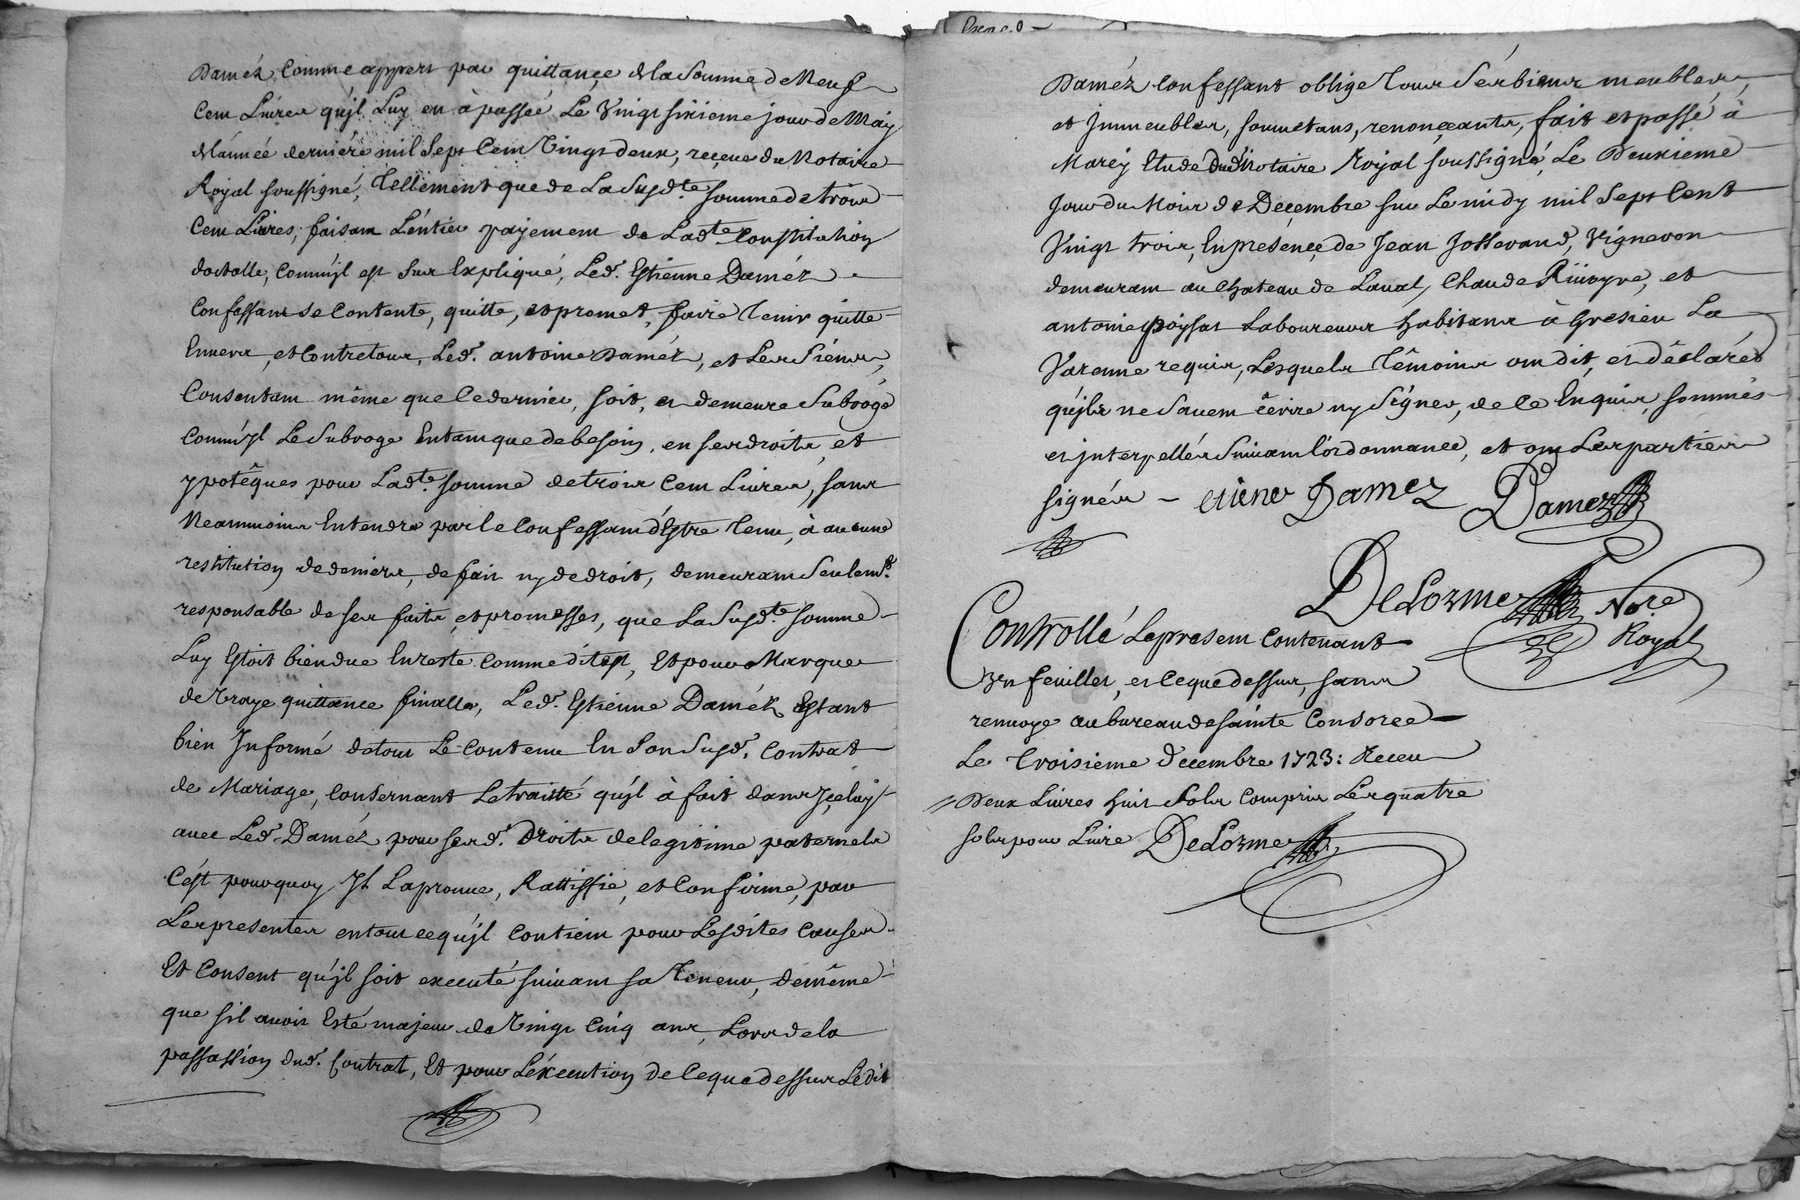 Daméz comme appert par quittance de la somme de Neuf
Cent Livres qu'jl Luy en à passéé Le vingt sixieme jour de May
de l'année derniéré mil Sept Cent vingt deux, reçeue du Notaire
Royal soussigné, Tellement que de La Susd.te somme de trois
Cent Livres, faisant L'entier payement de Lad.te Constitution
dostalle, comm'jl est Sus Expliqué, Led.t Estienne Daméz
Confessant Se Contente, quitte, et promet, faire Tenir quitte
Envers, et Contre tous, Led.t antoine Daméz, et Les Siéns,
Consentant même que Ce dernier, soit, et demeure Subrogé
comm'jl Le Subroge Entant que de besoin, en ses droits, et
ypotêques pour Lad.te somme de trois Cent Livres, sans
Neanmoins Entendre par le Confessant d'Estre Tenu, à aucune
restitution de deniers, de fait ny de droit, demeurant Seulem.t
responsable de ses faits, et promesses, que La Susd.te somme
Luy Estoit bien due En reste comme dit est, Et pour Marque
de vraye quittance finalle, Led.t Estienne Daméz Estant
bien Jnformé de tout Le Contenu En Son Susd.t Contrat
de Mariage, Consernant Le traitté qu'jl à fait dans Jçeluy
avec Led.t Daméz, pour ses d.t droits de legitime paternels
C'est pourquoy Jl Laprouve, Rattiffie, et Confirme, par
Les presentes en tout ce qu'jl contient pour Lesdites Causes
Et Consent qu'jl soit executé suivant sa Teneur, de même
que s'il avoit Esté majeur de vingt Cinq ans, Lors de la
passassion dud.t Contrat, Et pour L'éxecution de Ce que dessus Ledit
Daméz Confessant oblige Tous Ses biens meubles,
et Jmmeubles, soumetans, renonçeants, fait et passé à
Marcy Etude dud. Notaire Royal soussigné, Le Deuxieme
Jour du Mois de Deçembre sur Le midy mil Sept Cent
Vingt trois, En presençe de Jean Josserand, Vigneron
demeurant au Chateau de Laval, Claude Riuoyre, et
antoine poysat Laboureurs habitans à Gresieu La
Varenne requis, Lesquels Têmoins ont dit, et déclaré
qu'jls ne Sauent écrire ny Signer, de ce Enquis, sommés
et jnterpellés Suivant L'ordonnance, et ont Les parties
signées - etiene Damez Damez
DeLorme No.re
Royal
Controllé Le present contenant
un feuillet, et ce que dessus, sans
renuoye au bureau de sainte Consorce
Le Troisieme Decembre 1723: Receu
Deux Livres huit Sols compris Les quatre
sols pour Livre DeLorme